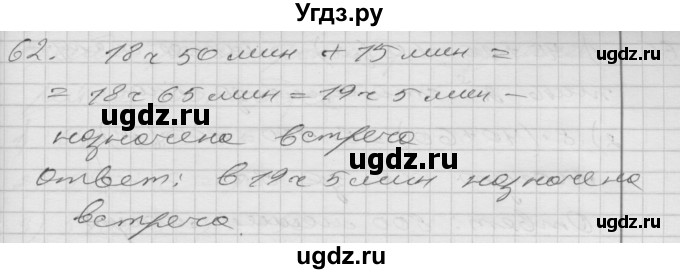 Угдз.ру
62. 18 ч 50 мин + 15 мин =
= 18 ч 65 мин = 19 ч 5 мин –
назначена встреча
ugdz.ru
ugdz.ru
Ответ: в 19 ч 5 мин назначена
ugdz.ru
встреча.
ugdz.ru
ugdz.ru